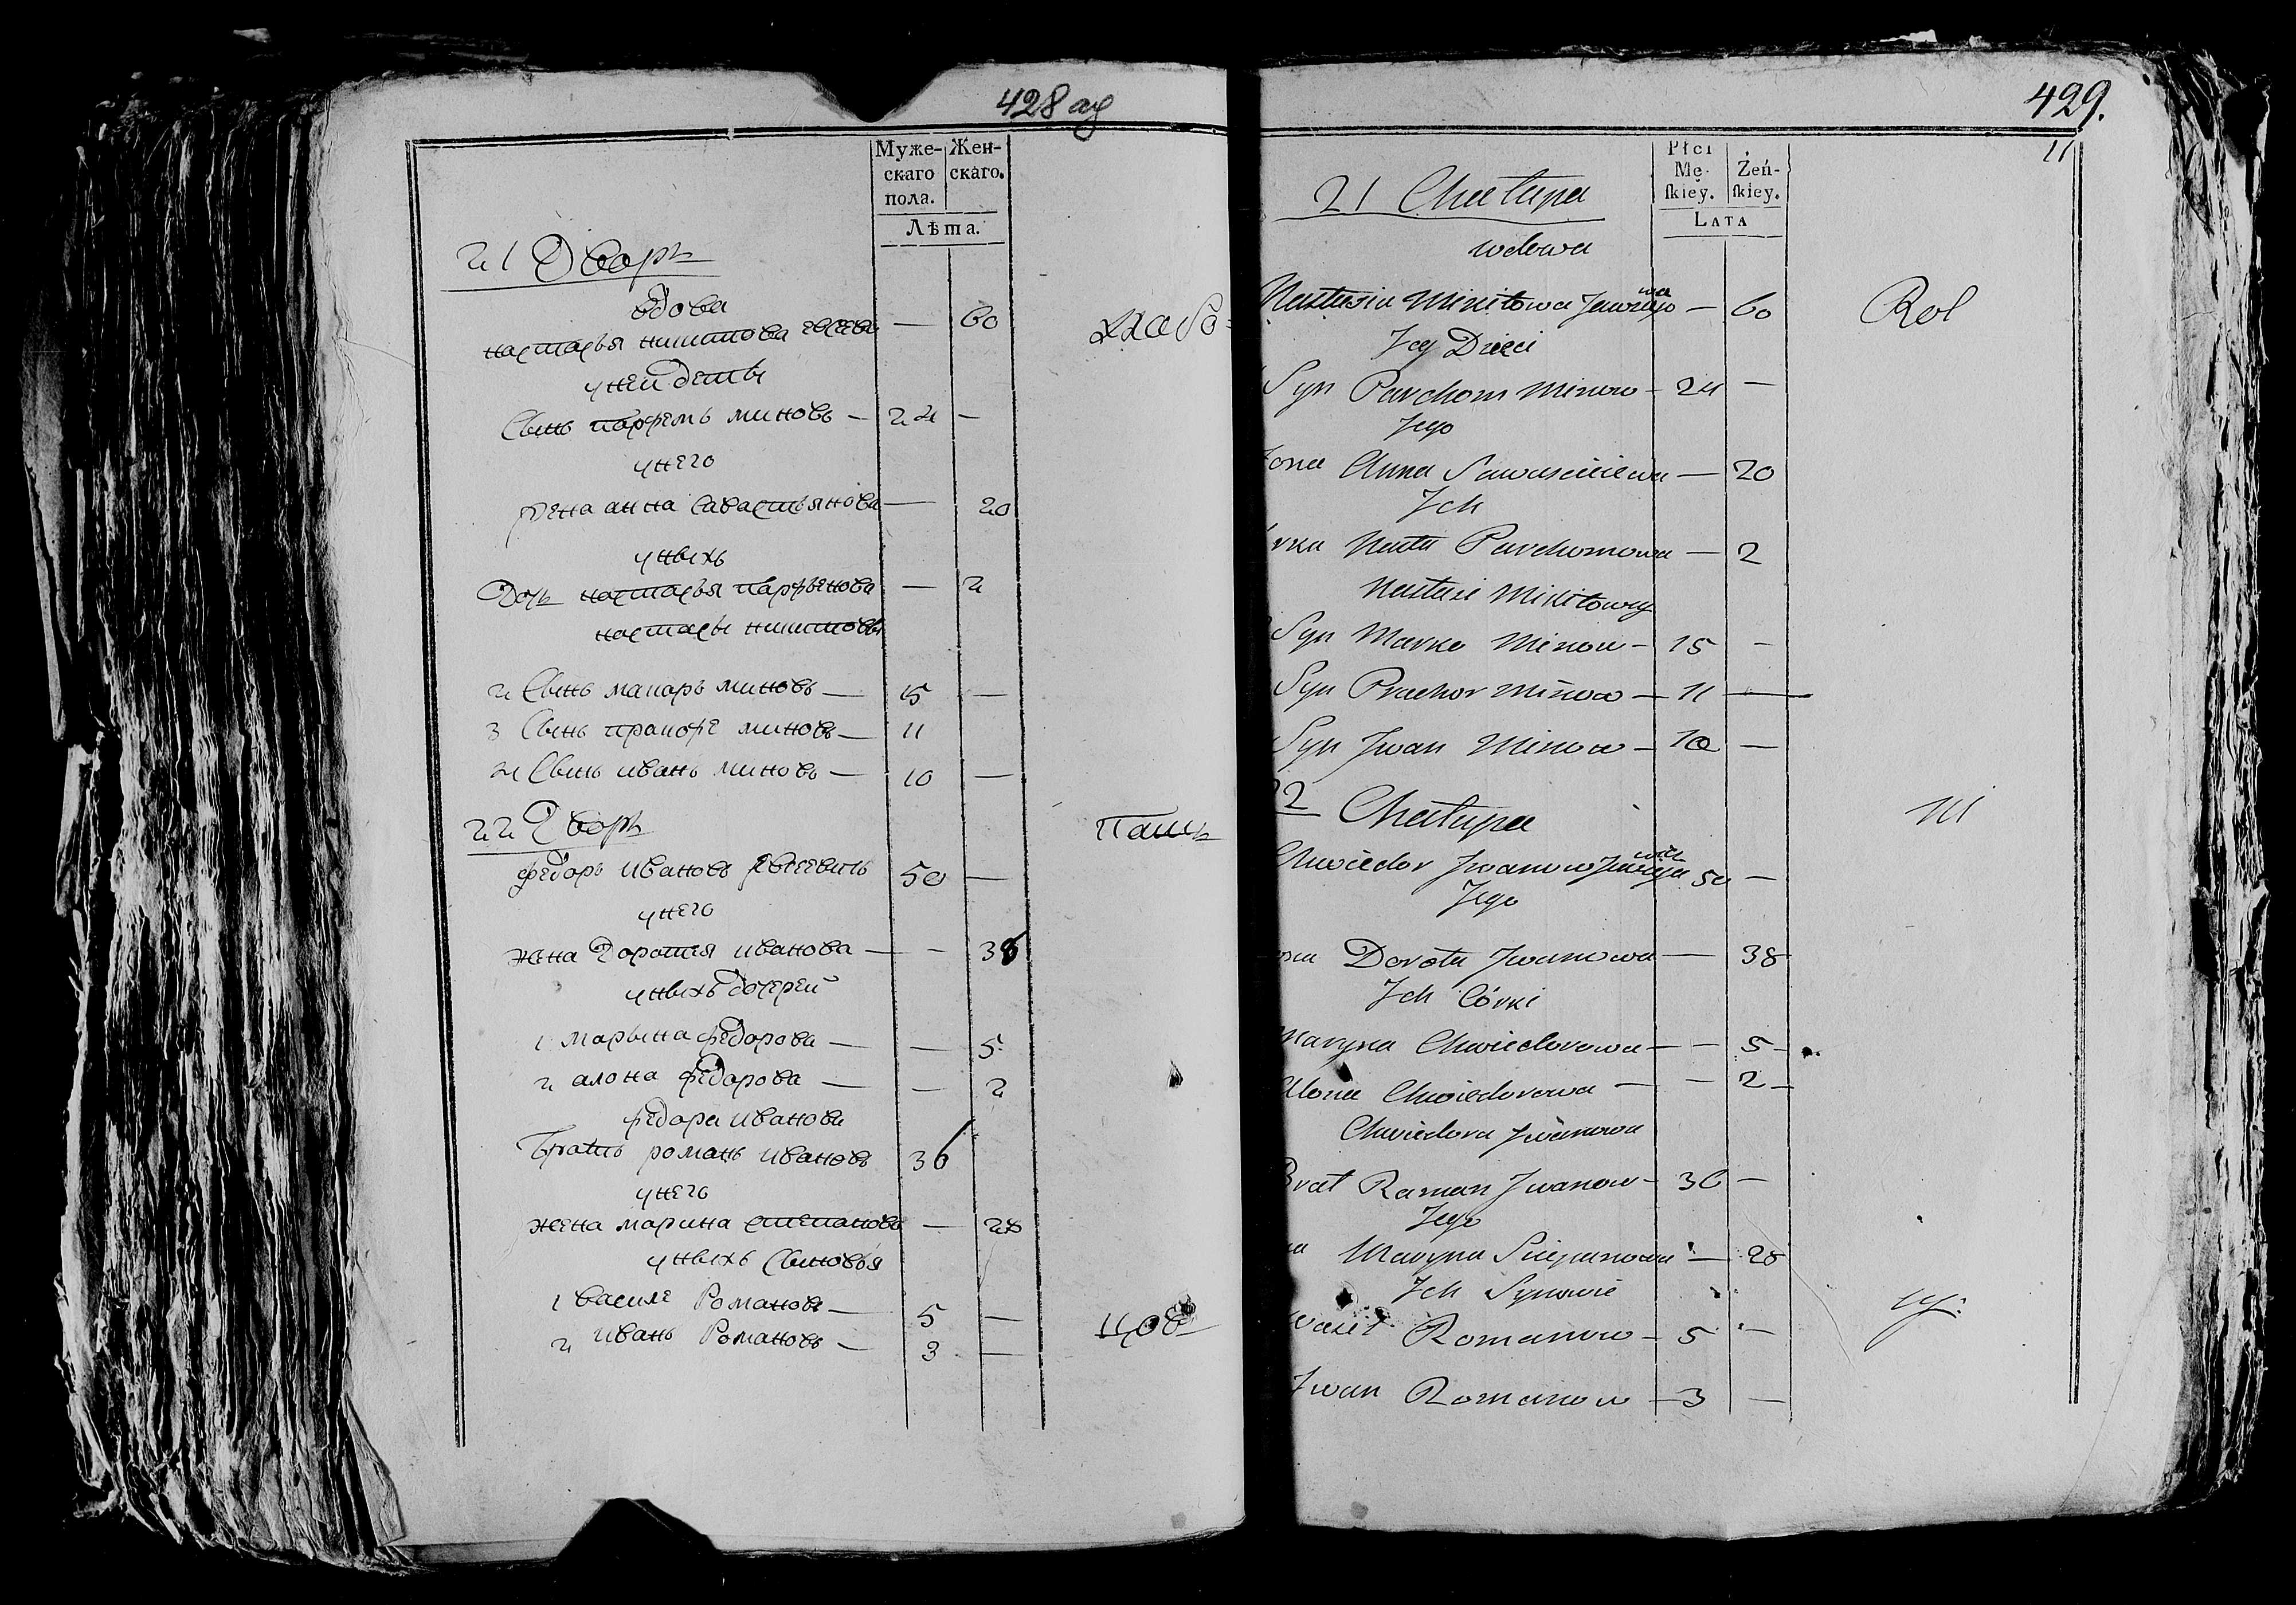 428 ag
Муже-
скаго
пола.
Жен-
скаго.
Лѣта.
21 Дворъ
вдова
настасья никитова — 60
у ней дети
Сынъ парфемъ миновъ — 24 —
у него
жена анна савастьянова — 20
у ныхъ
Дочь настасья парфьенова — 2
настасьи никитовы
2 Сынъ макаръ миновъ — 15 —
3 Сынъ пракофе миновъ — 11
4 Сынъ иванъ миновъ — 10 —
22 Дворъ
федоръ ивановъ 50 —
у него
жена Доротея иванова — — 38
у ныхъ дочерей
1 марына федорова — — 5
2 алона федорова — — 2
федора иванова
Братъ романъ ивановъ 36
у него
жена марина степанова — 28
у ныхъ сыновья
1 василе Романовъ — 5 —
2 иванъ Романовъ — 3 —
429.
11
Płci
Mę-
skiey.
Żeń-
skiey.
Lata
21 Chałupa
wdowa
Nastasia Mikitowa — 60
Rol
Jey Dzieci
Syn Parchom Minow — 24 —
Jego
Żona Anna Sawaściewa — 20
Jch
Nasta Parchomowa — 2
Nastasi Mikitowey
Syn Marko Minow — 15 —
Syn Prachor Minow — 11 —
Syn Jwan Minow — 10 —
22 Chałupa
Chwiedor Jwanow 50 —
Jego
Dorota Jwanowa — 38
Jch Córki
Maryna Chwiedorowa — — 5 —
Alona Chwiedorowa — — 2 —
Chwiedora Jwanowa
Brat Raman Jwanow — 36 —
Jego
Maryna Sciepanowa — 28
Jch Synowie
Wasil Romanow — 5 —
Jwan Romanow — 3 —